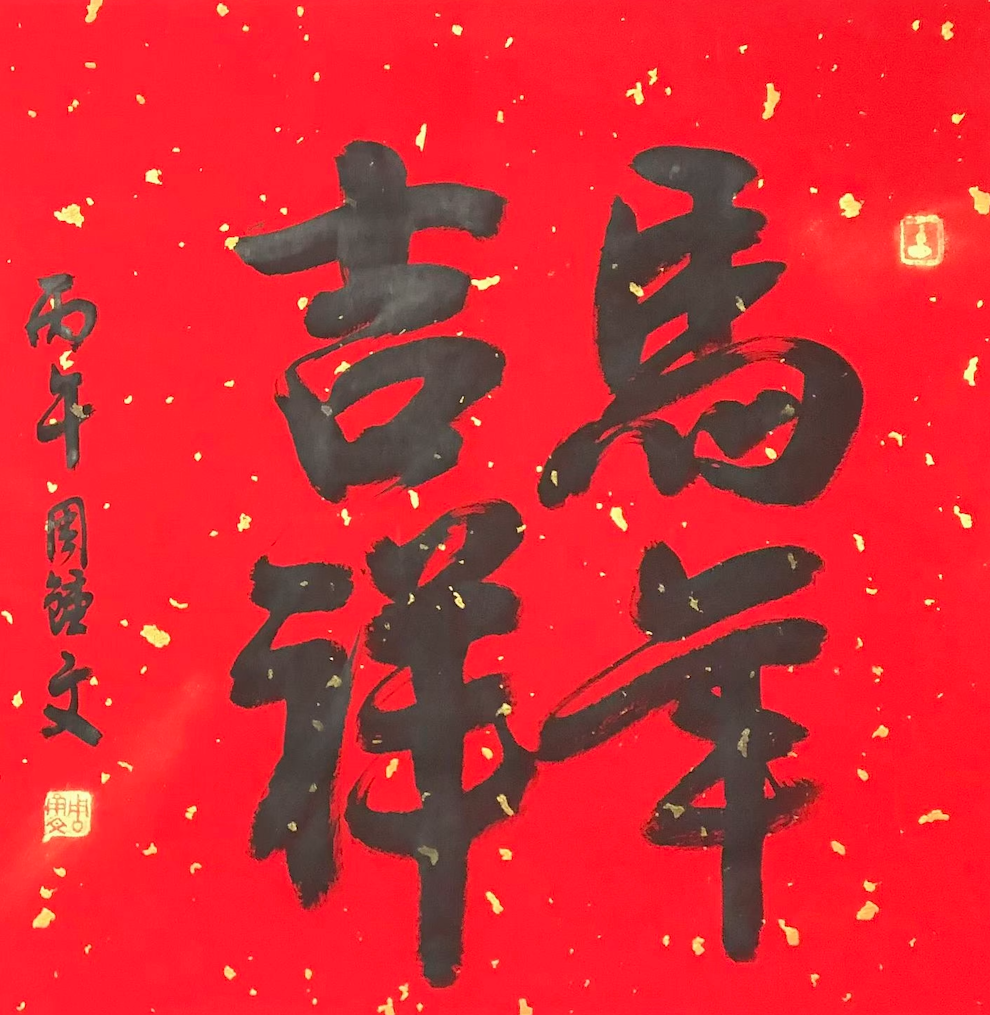 馬年
吉祥
丙午 周 文